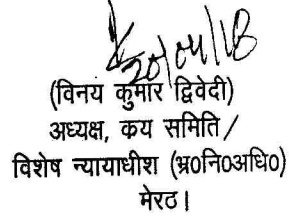 20/04/18
(विनय कुमार द्विवेदी)
अध्यक्ष, कय समिति /
विशेष न्यायाधीश (भ्र०नि०अधि०)
मेरठ।